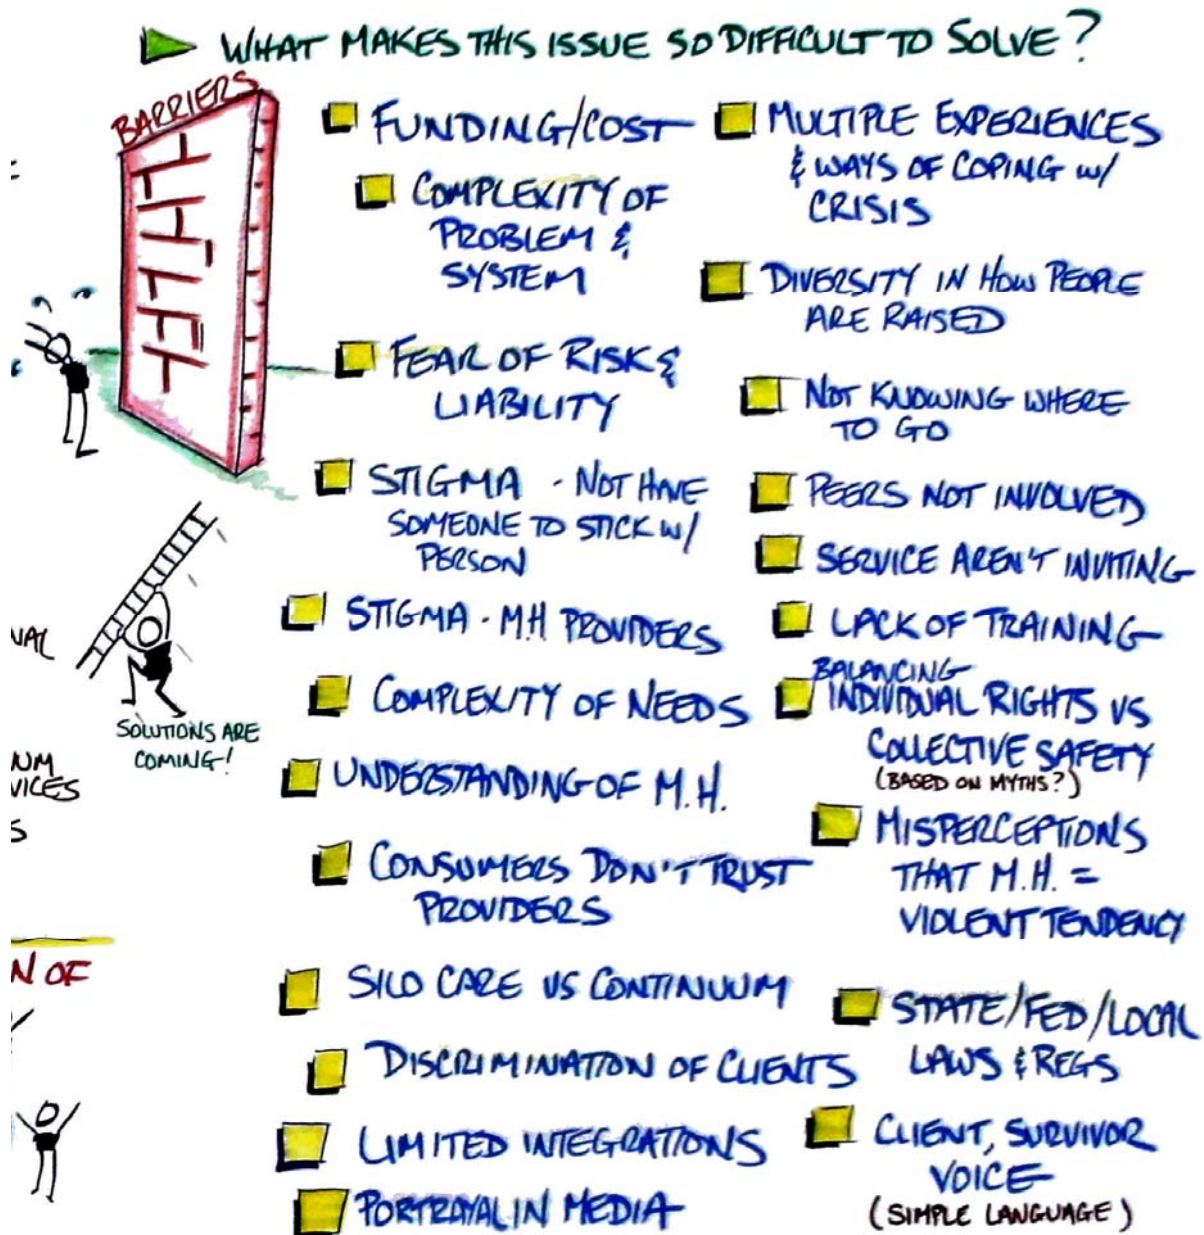 WHAT MAKES THIS ISSUE SO DIFFICULT TO SOLVE?
BARRIERS
FUNDING/COST
COMPLEXITY OF
PROBLEM &
SYSTEM
FEAR OF RISK &
LIABILITY
STIGMA - NOT HAVE
SOMEONE TO STICK W/
PERSON
STIGMA - M.H PROVIDERS
COMPLEXITY OF NEEDS
UNDERSTANDING OF M.H.
CONSUMERS DON'T TRUST
PROVIDERS
SILO CARE VS CONTINUUM
DISCRIMINATION OF CLIENTS
LIMITED INTEGRATIONS
PORTRAYAL IN MEDIA
MULTIPLE EXPERIENCES
& WAYS OF COPING W/
CRISIS
DIVERSITY IN HOW PEOPLE
ARE RAISED
NOT KNOWING WHERE
TO GO
PEERS NOT INVOLVED
SERVICE AREN'T INVITING
LACK OF TRAINING
BALANCING
INDIVIDUAL RIGHTS VS
COLLECTIVE SAFETY
(BASED ON MYTHS?)
MISPERCEPTIONS
THAT M.H. =
VIOLENT TENDENCY
STATE/FED/LOCAL
LAWS & REGS
CLIENT, SURVIVOR
VOICE
(SIMPLE LANGUAGE)
SOLUTIONS ARE
COMING!
N OF